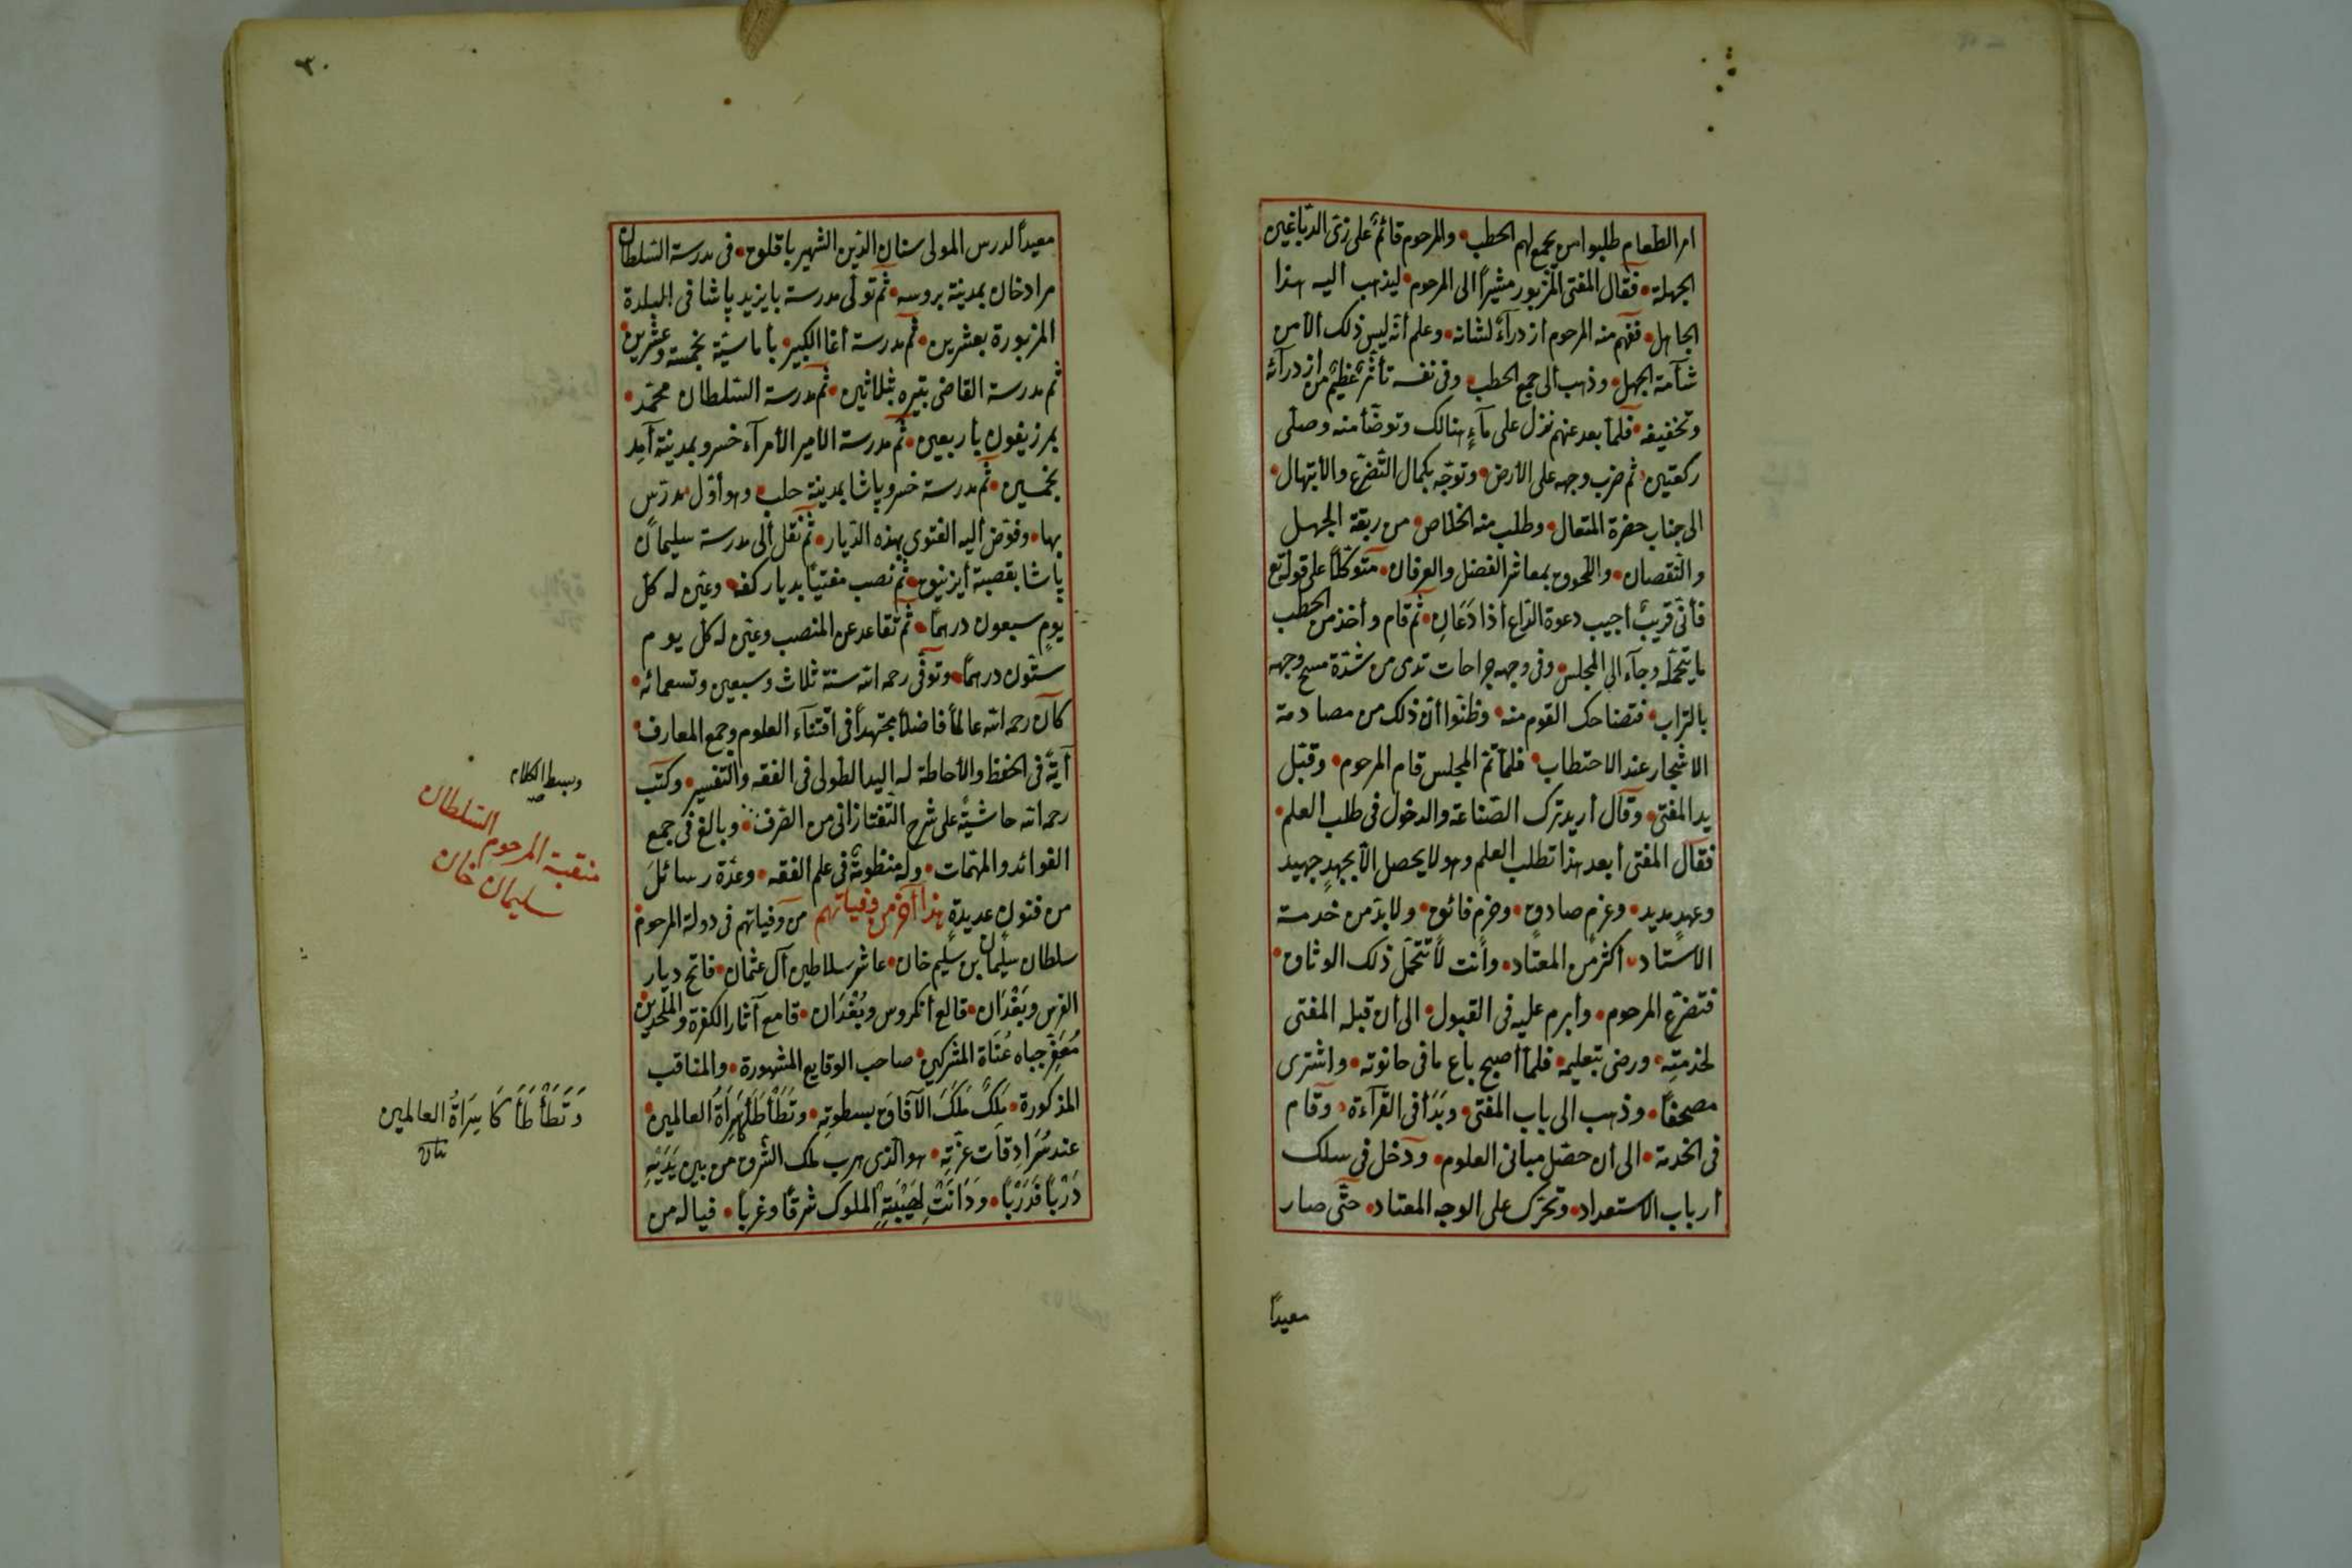 امر الطعام طلبوا من يجمع لهم الحطب • والمرحوم قائم على زى الدباغين
الجهلة • فقال المفتى المزبور مشيراً الى المرحوم • ليذهب اليه هذا
الجاهل • ففهم منه المرحوم ازدرآءً لشانه • وعلم أنه ليس ذلك الا من
شآمة الجهل • وذهب الى جمع الحطب • وفى نفسه تأثر عظيم من ازدرآئه
وتخفيفه • فلما بعد عنهم نزل على مآء هنالك وتوضأ منه وصلى
ركعتين • ثم ضرب وجهه على الأرض • وتوجه بكمال التضرع والابتهال •
الى جناب حضرة المتعال • وطلب منه الخلاص • من ربقة الجهل
والنقصان • واللحوق بمعاشر الفضل والعرفان • متوكلاً على قوله تع
فأنى قريب أجيب دعوة الداع أذا دعان • ثم قام وأخذ من الحطب
ما يتحمله وجآء الى المجلس • وفى وجهه جراحات تدمى من شدة مسح وجهه
بالتراب • فتضاحك القوم منه • وظنوا أن ذلك من مصادمة
الاشجار عند الاحتطاب • فلما تم المجلس قام المرحوم • وقبل
يد المفتى • وقال أريد ترك الصناعة والدخول فى طلب العلم •
فقال المفتى أبعد هذا تطلب العلم وهو لا يحصل الا بجهد جهيد
وعهد مديد • وعزم صادق • وحزم فائق • ولابد من خدمة
الاستاد • أكثر من المعتاد • وأنت لا تتحمل ذلك الوثاق •
فتضرع المرحوم • وأبرم عليه فى القبول • الى أن قبله المفتى
لخدمته • ورضى بتعليمه • فلما أصبح باع ما فى حانوته • واشترى
مصحفاً • وذهب الى باب المفتى • وبدأ فى القرآءة • وقام
فى الخدمة • الى أن حصل مبانى العلوم • ودخل فى سلك
أرباب الاستعداد • وتحرك على الوجه المعتاد • حتى صار
معيداً
٣٠
معيداً لدرس المولى سنان الدين الشهير باقلوق • فى مدرسة السلطان
مرادخان بمدينة بروسه • ثم تولى مدرسة بايزيد پاشا فى البلدة
المزبورة بعشرين • ثم مدرسة أغا الكبير • بأماسيّة بخمسة وعشرين •
ثم مدرسة القاضى بتيره بثلاثين • ثم مدرسة السلطان محمد •
بمرزيفون بأربعين • ثم مدرسة الامير الأمرآء خسرو بمدينة آمد
بخمسين • ثم مدرسة خسرو پاشا بمدينة حلب • وهو أول مدرس
بها • وفوض أليه الفتوى بهذه الديار • ثم نقل ألى مدرسة سليمان
پاشا بقصبة أيزنيق • ثم نصب مفتياً بديار كفه • وعين له كل
يوم سبعون درهماً • ثم تقاعد عن المنصب وعين له كل يوم
ستون درهماً • وتوفى رحمه الله سنة ثلاث وسبعين وتسعمائه •
كان رحمه الله عالماً فاضلاً مجتهداً فى اقتنآء العلوم وجمع المعارف •
آيةً فى الحفظ والأحاطة له اليد الطولى فى الفقه والتفسير • وكتب
رحمه الله حاشيةً على شرح التفتازانى من الصرف • وبالغ فى جمع
الفوائد والمهمات • وله منظومة فى علم الفقه • وعدة رسائل
من فنون عديدة هذا آخر من وفياتهم من وفياتهم فى دولة المرحوم
سلطان سليمان بن سليم خان • عاشر سلاطين آل عثمان • فاتح ديار
الفرس وبغدان • قالع أنكروس وبغدان • قامع آثار الكفرة والملحدين
معفر جباه عتاة المشركين • صاحب الوقايع المشهورة • والمناقب
المذكورة • ملك ملك الآفاق بسطوته • وتطأطأ لها سراة العالمين •
عند سرادقات عزته • هو الذى هرب ملك الشرق من بين يديه
دَرْباً فدَرْباً • ودانت لهيبته الملوك شرقاً وغرباً • فياله من
وبسط الكلام
صح
منقبة المرحوم السلطان
سليمان خان
وتطأطأ كا سراة العالمين